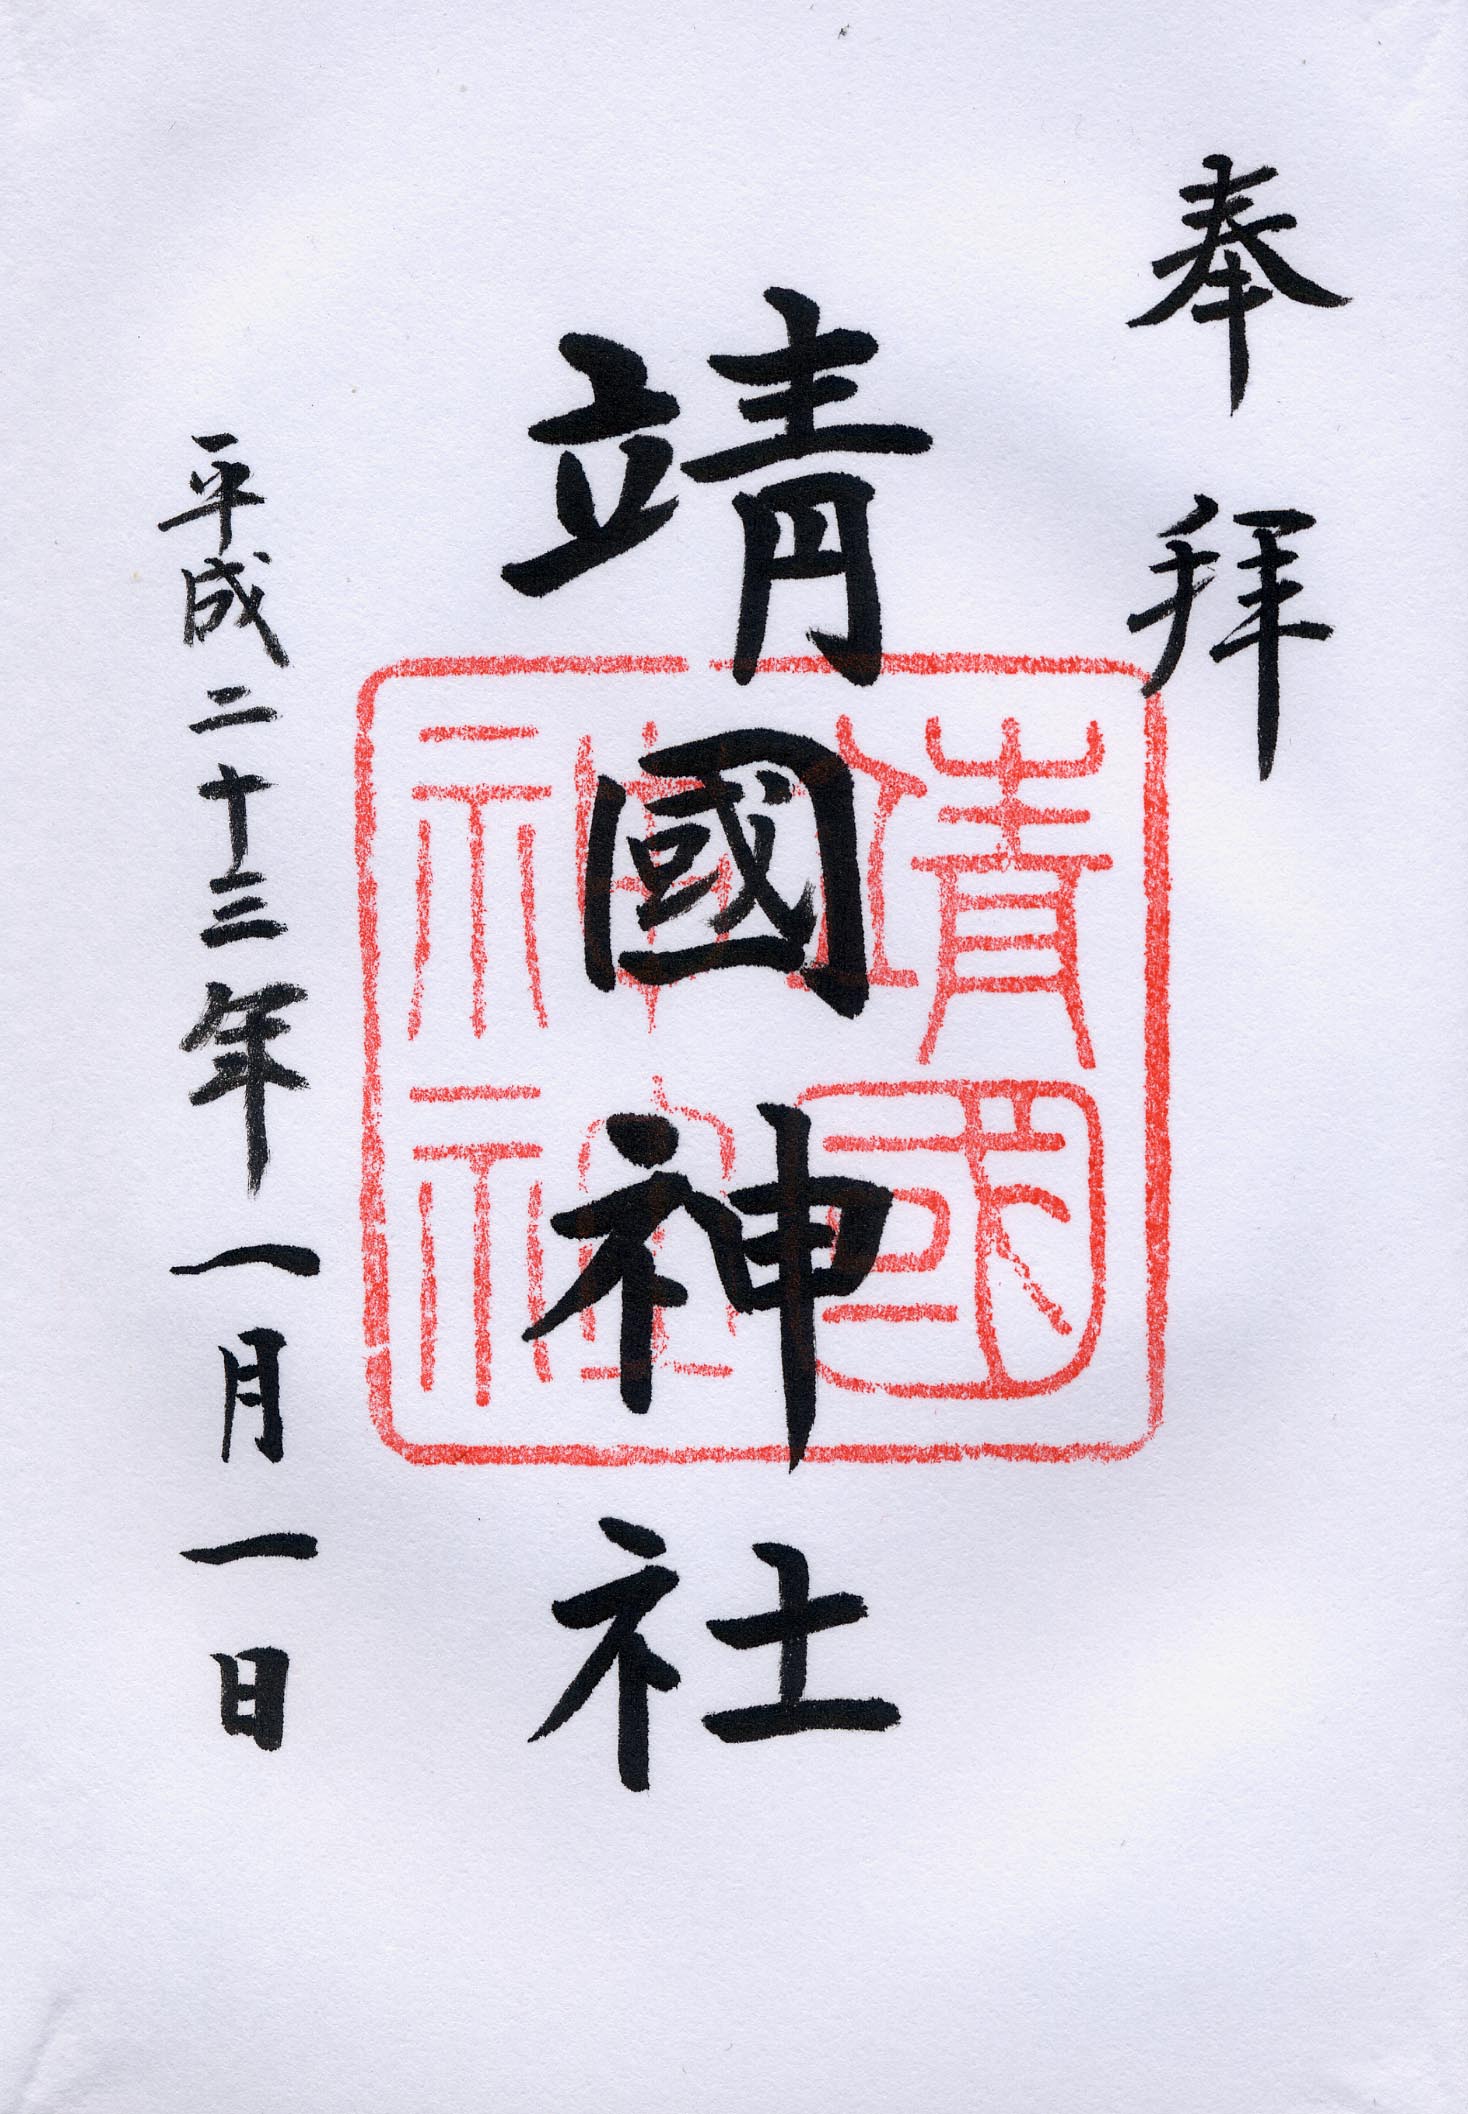 奉拜
靖國神社
靖國
神社
平成二十三年一月一日